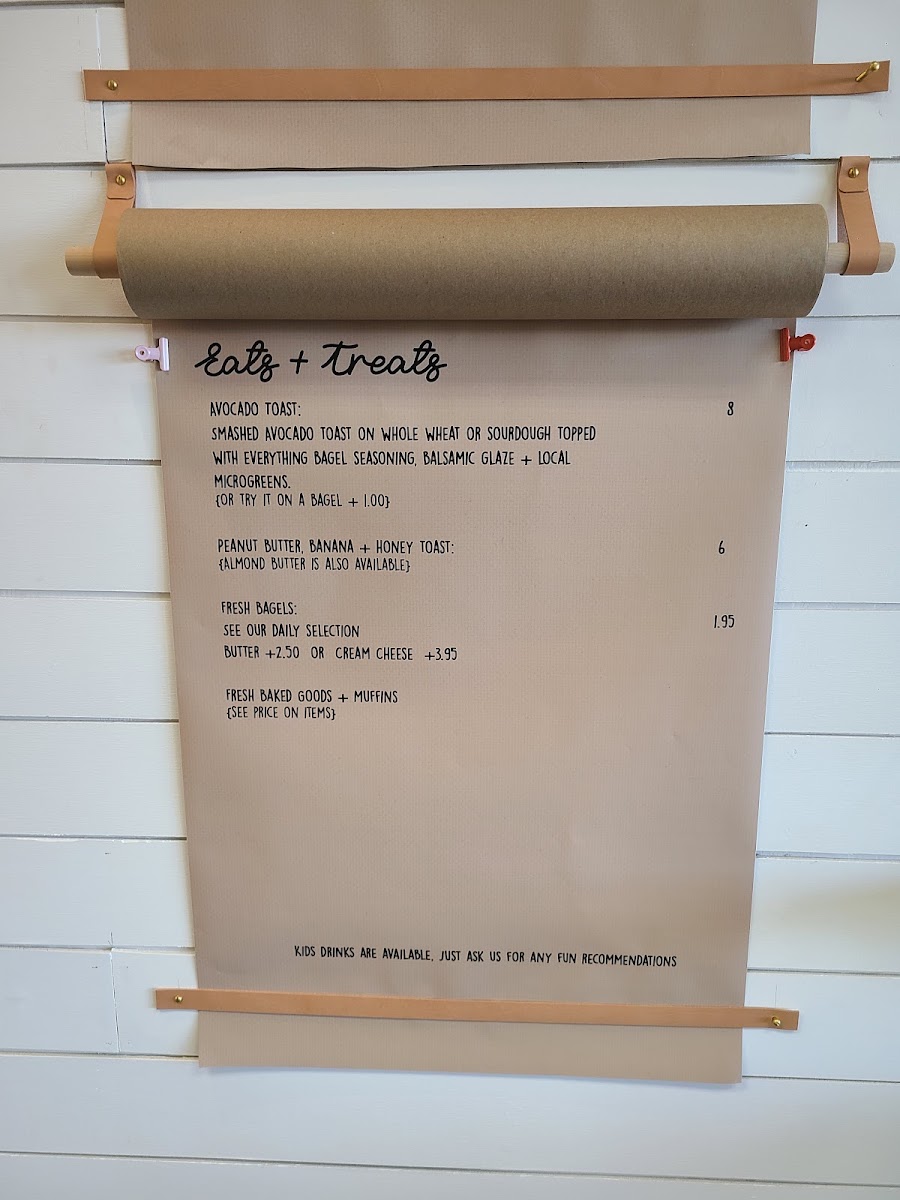 Eats + Treats
AVOCADO TOAST: 8
SMASHED AVOCADO TOAST ON WHOLE WHEAT OR SOURDOUGH TOPPED
WITH EVERYTHING BAGEL SEASONING, BALSAMIC GLAZE + LOCAL
MICROGREENS.
{OR TRY IT ON A BAGEL + 1.00}
PEANUT BUTTER, BANANA + HONEY TOAST: 6
{ALMOND BUTTER IS ALSO AVAILABLE}
FRESH BAGELS: 1.95
SEE OUR DAILY SELECTION
BUTTER +2.50 OR CREAM CHEESE +3.95
FRESH BAKED GOODS + MUFFINS
{SEE PRICE ON ITEMS}
KIDS DRINKS ARE AVAILABLE, JUST ASK US FOR ANY FUN RECOMMENDATIONS